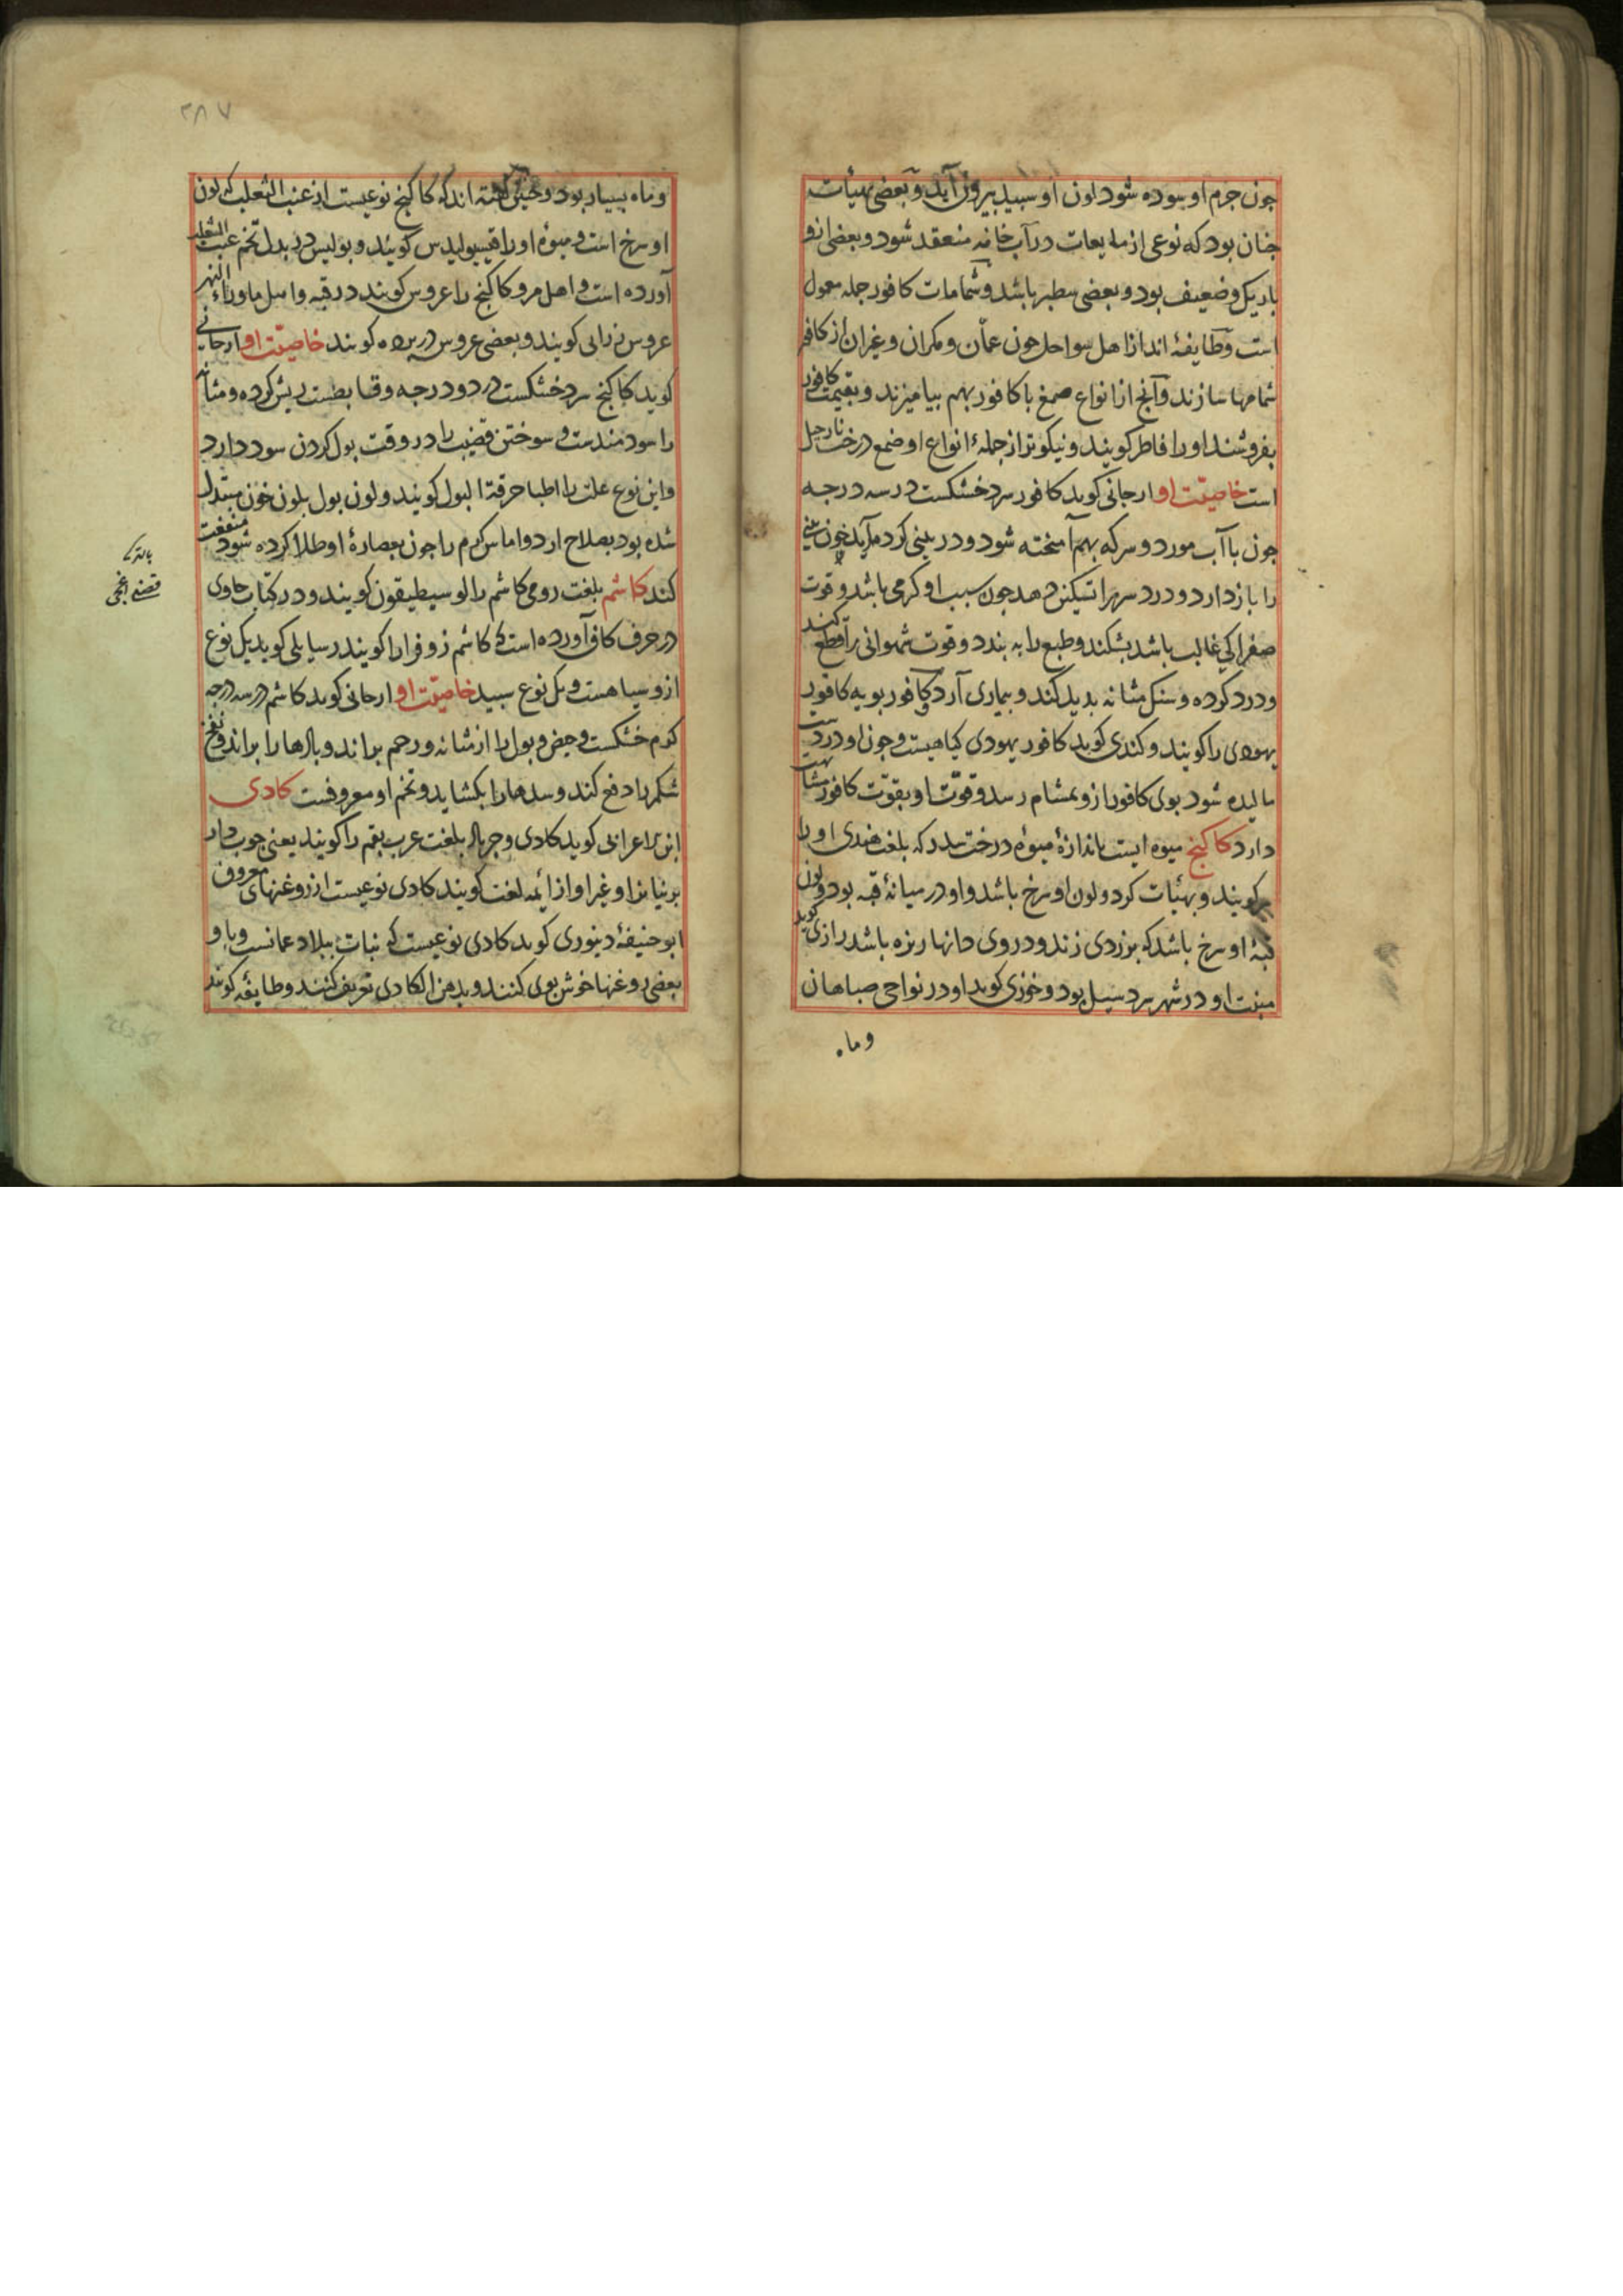 جون جرم او سوده شود لون او سپید بیرون آید و بعضی بهیأت
جنان بود که نوعی از مایعات در آب خانه منعقد شود و بعضی ازو
باریک و ضعیف بود و بعضی سطبر باشد و شمامات کافور جمله معمول
است و طایفهٔ اند از اهل سواحل جون عمّان و مکران و غیر آن از کافور
شمامها سازند و آنج از انواع صمغ با کافور بهم بیامیزند و بقیمت کافور
بفروشند او را فاطر کویند و نیکوتر از جملهٔ انواع او ضمغ درخت نارجیل
است خاصیّت او ارجانی کوید کافور سرد خشکست در سه درجه
جون با آب مورد و سرکه بهم آمیخته شود و در بینی کرده آید خون بینی
را باز دارد و درد سر را تسکین دهد جون سبب او کرمی باشد و قوت
صفرا کی غالب باشد بشکند و طبع را به بندد و قوت شهوانی را قطع کند
و درد کرده و سنک مثانه بدید کند و بیماری آرد کافور بویه کافور
یهودی را کویند و کندی کوید کافور یهودی کیاهیست و جون او در دست
مالیده شود بوی کافور ازو بمشام رسد و قوّت او بقوّت کافور مشابهت
دارد کاکنج میوه ایست باندازهٔ میوهٔ درخت سدر که بلغت هندی او را
کویند و بهیأت کرد و لون او سرخ باشد و او در میانهٔ قبه بود و لون
قبهٔ او سرخ باشد که بزردی زند و در وی دانها ریزه باشد رازی کوید
منبت او در شهر سردسیل بود و خوزی کوید او در نواحی صباهان
وماه
۲۸۷
و ماه بسیار بود و جنین کفته اند که کاکنج نوعیست از عنب الثعلب که لون
او سرخ است و میوهٔ او را قیسولیدس کویند و بولیس در بدل تخم عنب الثعلب
آورده است و اهل مرو کاکنج را عروس کویند در قبه و اهل ماوراء النهر
عروس نزانی کویند و بعضی عروس در پرده کویند خاصیّت او ارجانی
کوید کاکنج سرد خشکست در دو درجه و قابضست ریش کرده و مثانه
را سودمندست و سوختن قضیب را در وقت بول کردن سود دارد
و این نوع علت را اطبا حرقة البول کویند و لون بول بلون خون مبتدل
شده بود بصلاح ارد و اماس کرم را جون بعصارهٔ او طلا کرده شود منفعت
کند کاشم بلغت رومی کاشم را لوسیطیقون کویند و در کتاب حاوی
در حرف کاف آورده است که کاشم زوفرا را کویند رسایلی کوید یک نوع
ازو سیاهست و یک نوع سپید خاصیّت او ارجانی کوید کاشم در سه درجه
کرم خشکست و حیض و بول را از مثانه و رحم براند و بادها را براند و نفخ
شکم را دفع کند و سدها را بکشاید و تخم او معروفست کادی
ابن الاعرابی کوید کادی و جریال بلغت عرب بقم را کویند یعنی جوب دار
برنیان را و غیر او از ائمه لغت کویند کادی نوعیست از روغنهای معروف
ابو حنیفهٔ دینوری کوید کادی نوعیست که نبات ببلاد عمانست و باو
بعضی روغنها خوش بوی کنند و بدهن الکادی تعریف کنند و طایفه کویند